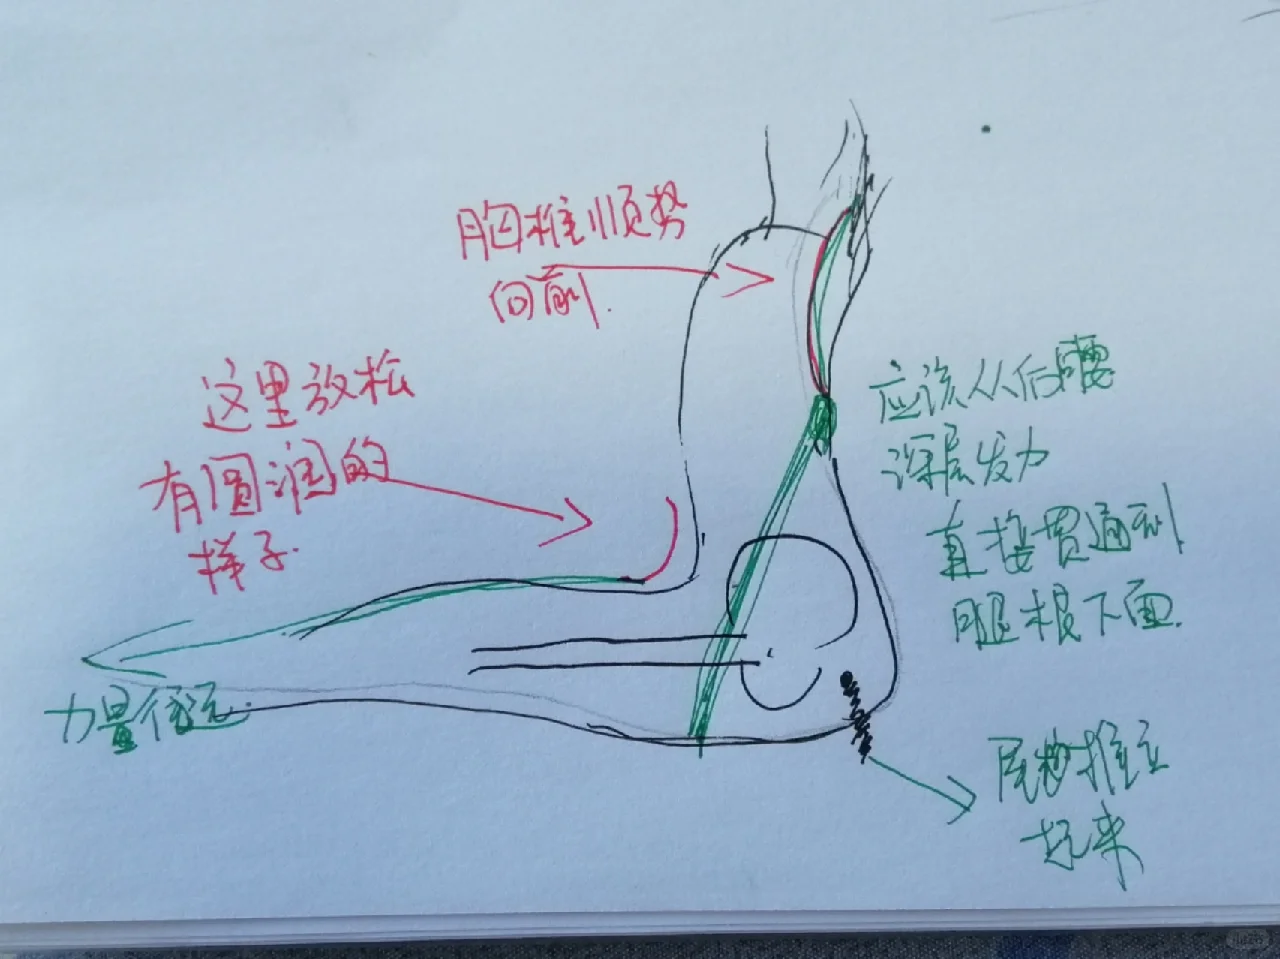 胸椎顺势
向前.
这里放松
有圆润的
样子.
应该从后腰
深层发力
直接贯通到
腿根下面.
力量往远.
尾椎立
起来